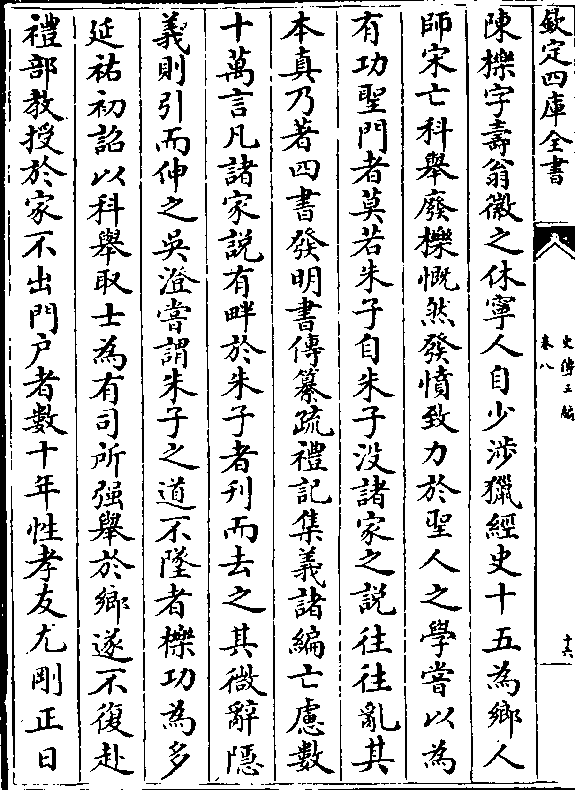 欽定四庫全書
史傳三編
卷八
十六
陳櫟字壽翁徽之休寧人自少涉獵經史十五為鄉人
師宋亡科舉廢櫟慨然發憤致力於聖人之學嘗以為
有功聖門者莫若朱子自朱子没諸家之說往往亂其
本真乃著四書發明書傳纂疏禮記集義諸編亡慮數
十萬言凡諸家說有畔於朱子者刊而去之其微辭隱
義則引而伸之吳澄嘗謂朱子之道不墜者櫟功為多
延祐初詔以科舉取士為有司所强舉於鄉遂不復赴
禮部教授於家不出門户者數十年性孝友尤剛正日